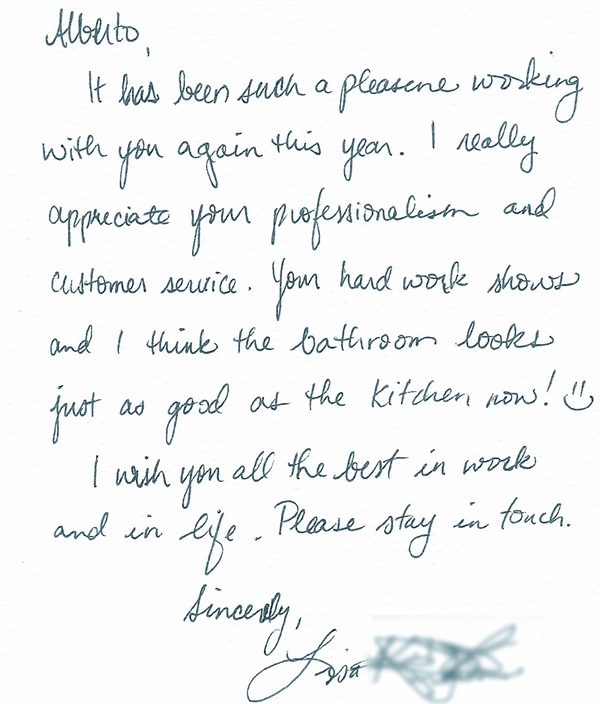 Alberto,
It has been such a pleasure working
with you again this year. I really
appreciate your professionalism and
customer service. Your hard work shows
and I think the bathroom looks
just as good as the kitchen now! :)
I wish you all the best in work
and in life. Please stay in touch.
Sincerely,
Lisa